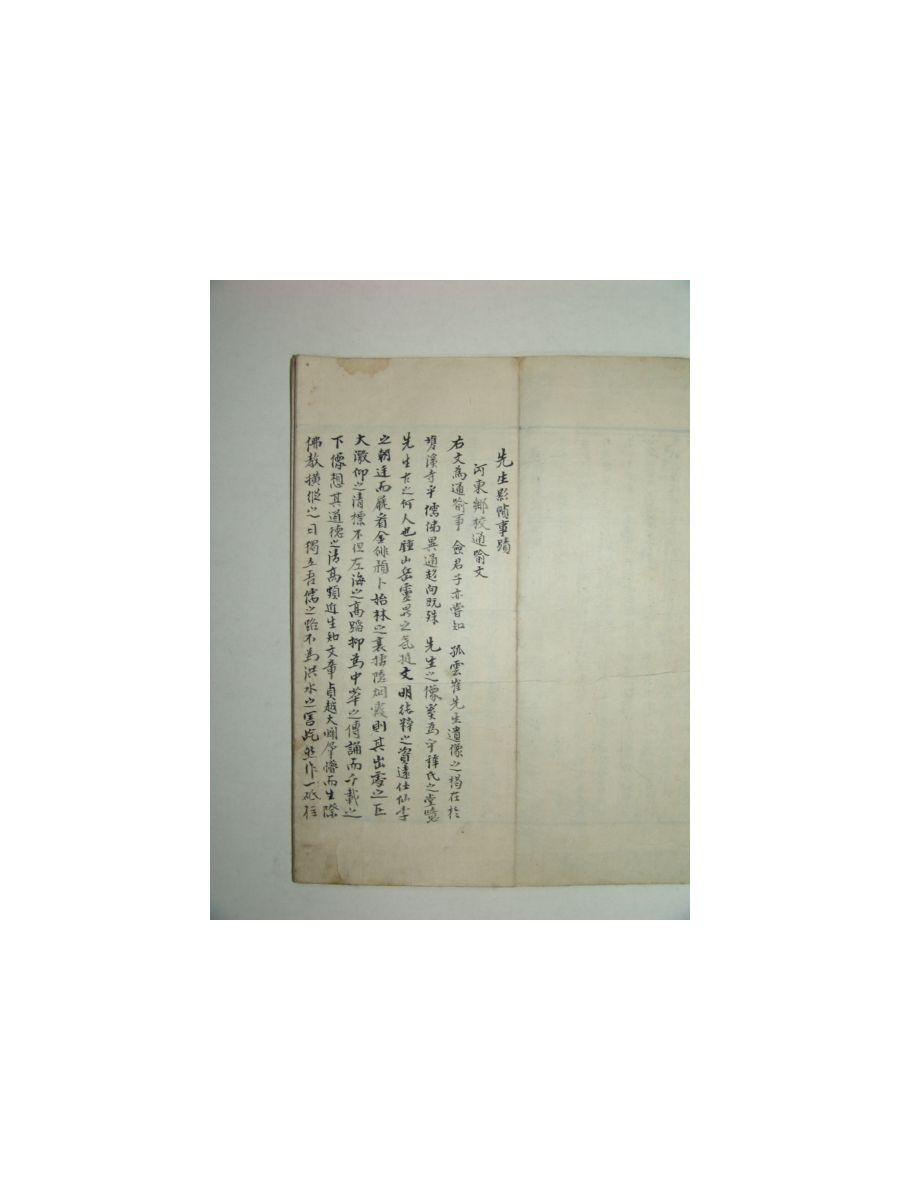 先生影幀事蹟
河東鄕校通喻文
右文爲通喻事 僉君子亦嘗知 孤雲崔先生遺像之揭在於
雙溪寺乎儒佛異通趍向旣殊 先生之像奚爲守釋氏之堂噫
先生古之何人也鍾山岳靈異之氣挺文明精粹之資遠仕仙李
之朝廷而晩卜始林之裏捿隱烟霞則其出處之正
大激仰之淸標不但左海之高蹈抑爲中華之傳誦而千載之
下像想其道德之淸高類近生知文章貞越大闡筆 而生際
佛敎橫縱之日獨立吾儒之路不爲洪水之害屹然作一砥柱